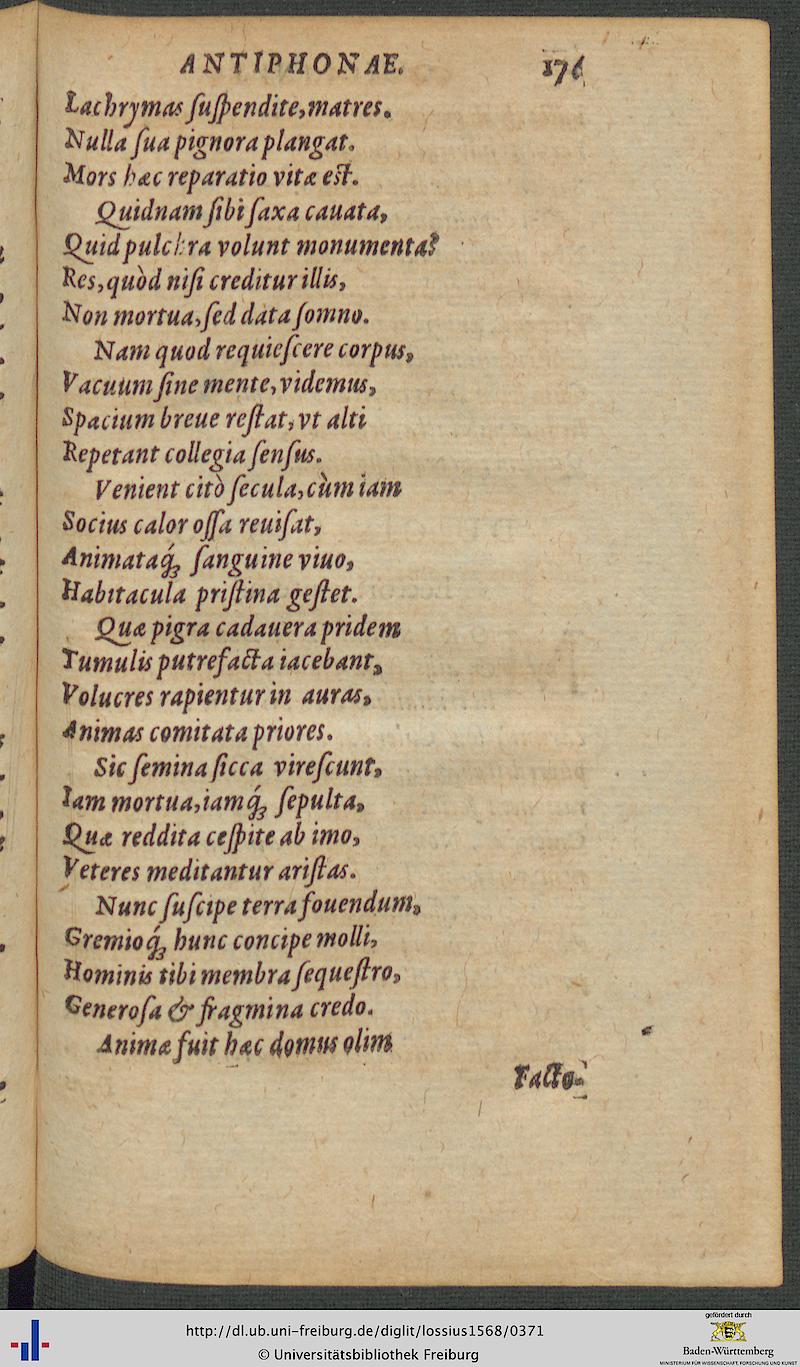 ANTIPHONAE. 176
Lachrymas ſuſpendite, matres.
Nulla ſua pignora plangat.
Mors hæc reparatio vitæ eſt.
Quidnam ſibi ſaxa cauata,
Quid pulchra volunt monumenta?
Res, quòd niſi creditur illis,
Non mortua, ſed data ſomno.
Nam quod requieſcere corpus,
Vacuum ſine mente, videmus,
Spacium breue reſtat, vt alti
Repetant collegia ſenſus.
Venient citò ſecula, cùm iam
Socius calor oſſa reuiſat,
Animataq́; ſanguine viuo,
Habitacula priſtina geſtet.
Quæ pigra cadauera pridem
Tumulis putrefacta iacebant,
Volucres rapientur in auras,
Animas comitata priores.
Sic ſemina ſicca vireſcunt,
Iam mortua, iamq́; ſepulta,
Quæ reddita ceſpite ab imo,
Veteres meditantur ariſtas.
Nunc ſuſcipe terra fouendum,
Gremioq́; hunc concipe molli,
Hominis tibi membra ſequeſtro,
Generoſa & fragmina credo.
Animæ fuit hæc domus olim
Facto-
http://dl.ub.uni-freiburg.de/diglit/lossius1568/0371
© Universitätsbibliothek Freiburg
gefördert durch
Baden-Württemberg
MINISTERIUM FÜR WISSENSCHAFT, FORSCHUNG UND KUNST